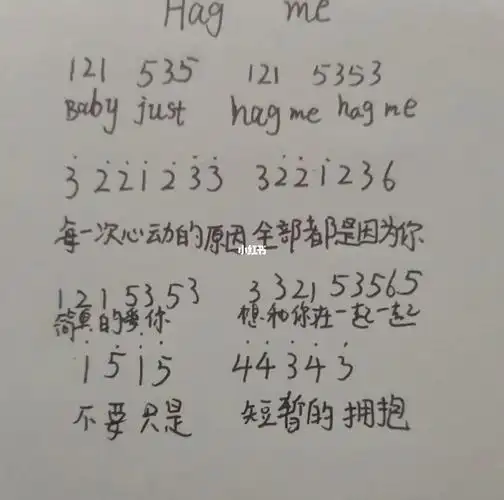 Hag me
121 535 121 5353
Baby just hag me hag me
3̇ 2̇ 2̇ 1̇ 2̇ 3̇ 3̇ 3 2̇ 2̇ 1̇ 2 3 6
每一次心动的原因全部都是因为你
小红书
1 2 1 5 3 5 3 3 3 2 1 5 3 5 6 5
简真的爱你 想和你在一起一起
1̇ 5̇ 1̇ 5̇ 4̇ 4̇ 3̇ 4̇ 3̇
不要只是 短暂的拥抱